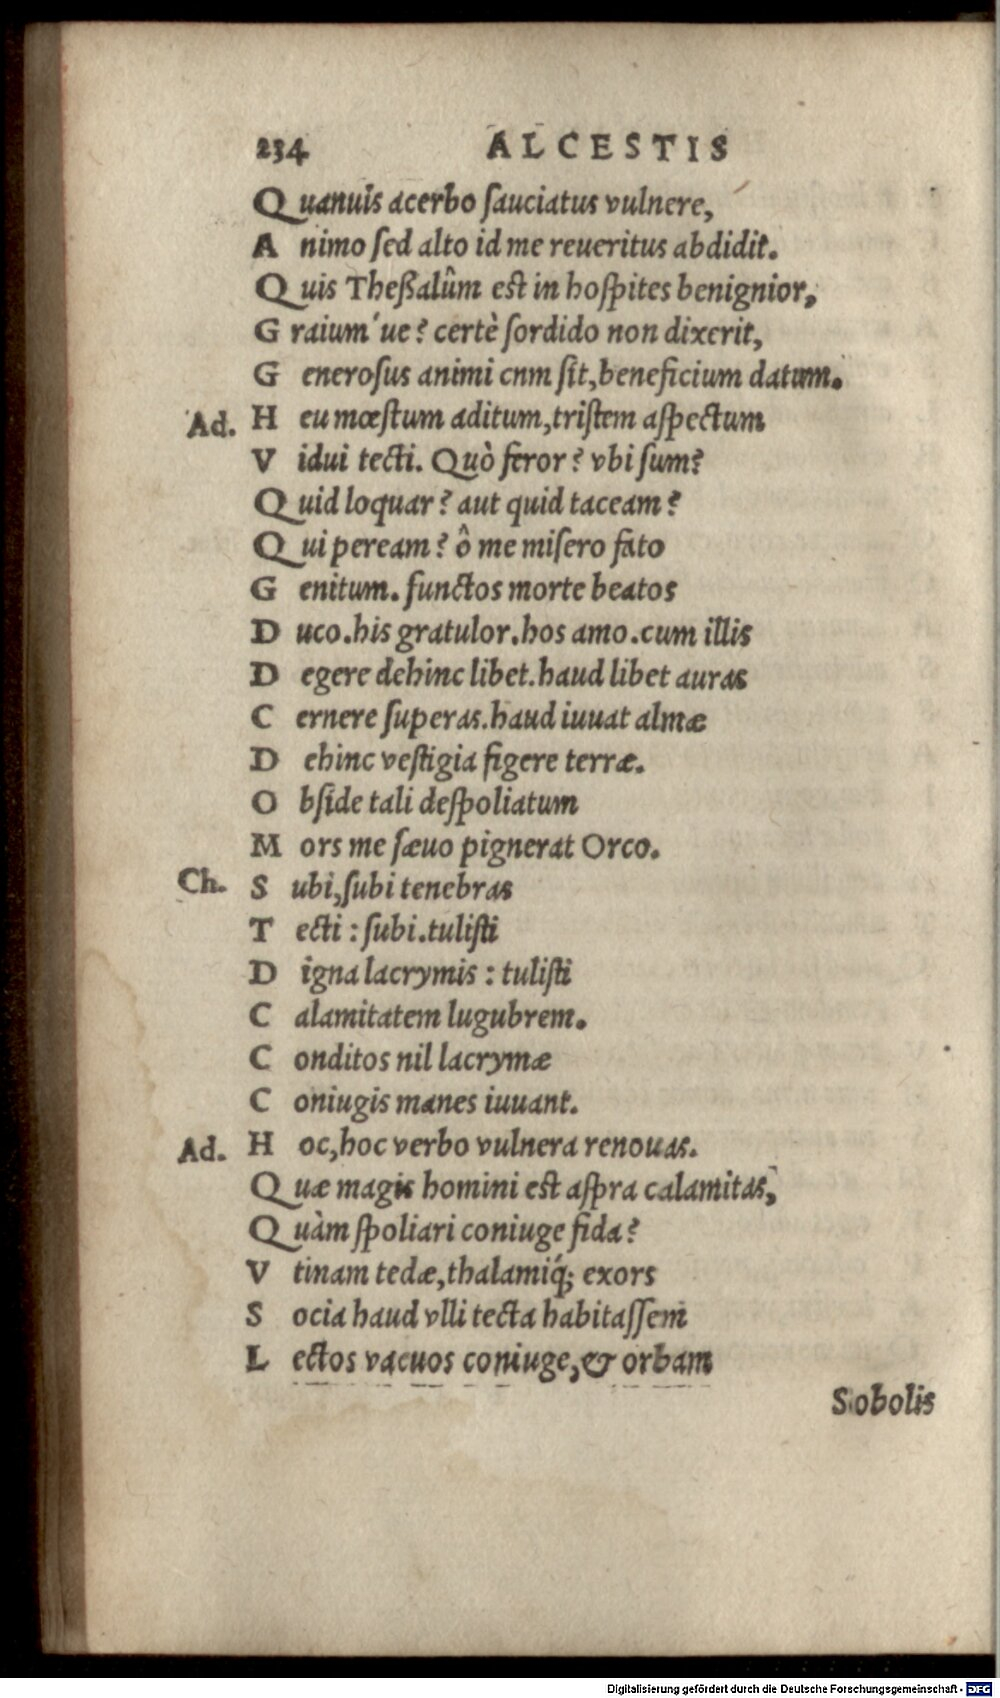 234 ALCESTIS
Quanuis acerbo ſauciatus vulnere,
Animo ſed alto id me reueritus abdidit.
Quis Theßalûm est in hoſpites benignior,
Graium´ue? certè ſordido non dixerit,
Generoſus animi cnm ſit, beneficium datum.
Ad. Heu mœſtum aditum, triſtem aſpectum
Vidui tecti. Quò feror? vbi ſum?
Quid loquar? aut quid taceam?
Qui peream? ô me miſero fato
Genitum. functos morte beatos
Duco. his gratulor. hos amo. cum illis
Degere dehinc libet. haud libet auras
Cernere ſuperas. haud iuuat almæ
Dehinc veſtigia figere terræ.
Obſide tali deſpoliatum
Mors me ſæuo pignerat Orco.
Ch. Subi, ſubi tenebras
Tecti : ſubi. tuliſti
Digna lacrymis : tuliſti
Calamitatem lugubrem.
Conditos nil lacrymæ
Coniugis manes iuuant.
Ad. Hoc, hoc verbo vulnera renouas.
Quæ magis homini est aſpra calamitas,
Quàm ſpoliari coniuge fida?
Vtinam tedæ, thalamiq́; exors
Socia haud vlli tecta habitaſſem
Lectos vacuos coniuge, & orbam
Sobolis
Digitalisierung gefördert durch die Deutsche Forschungsgemeinschaft - DFG